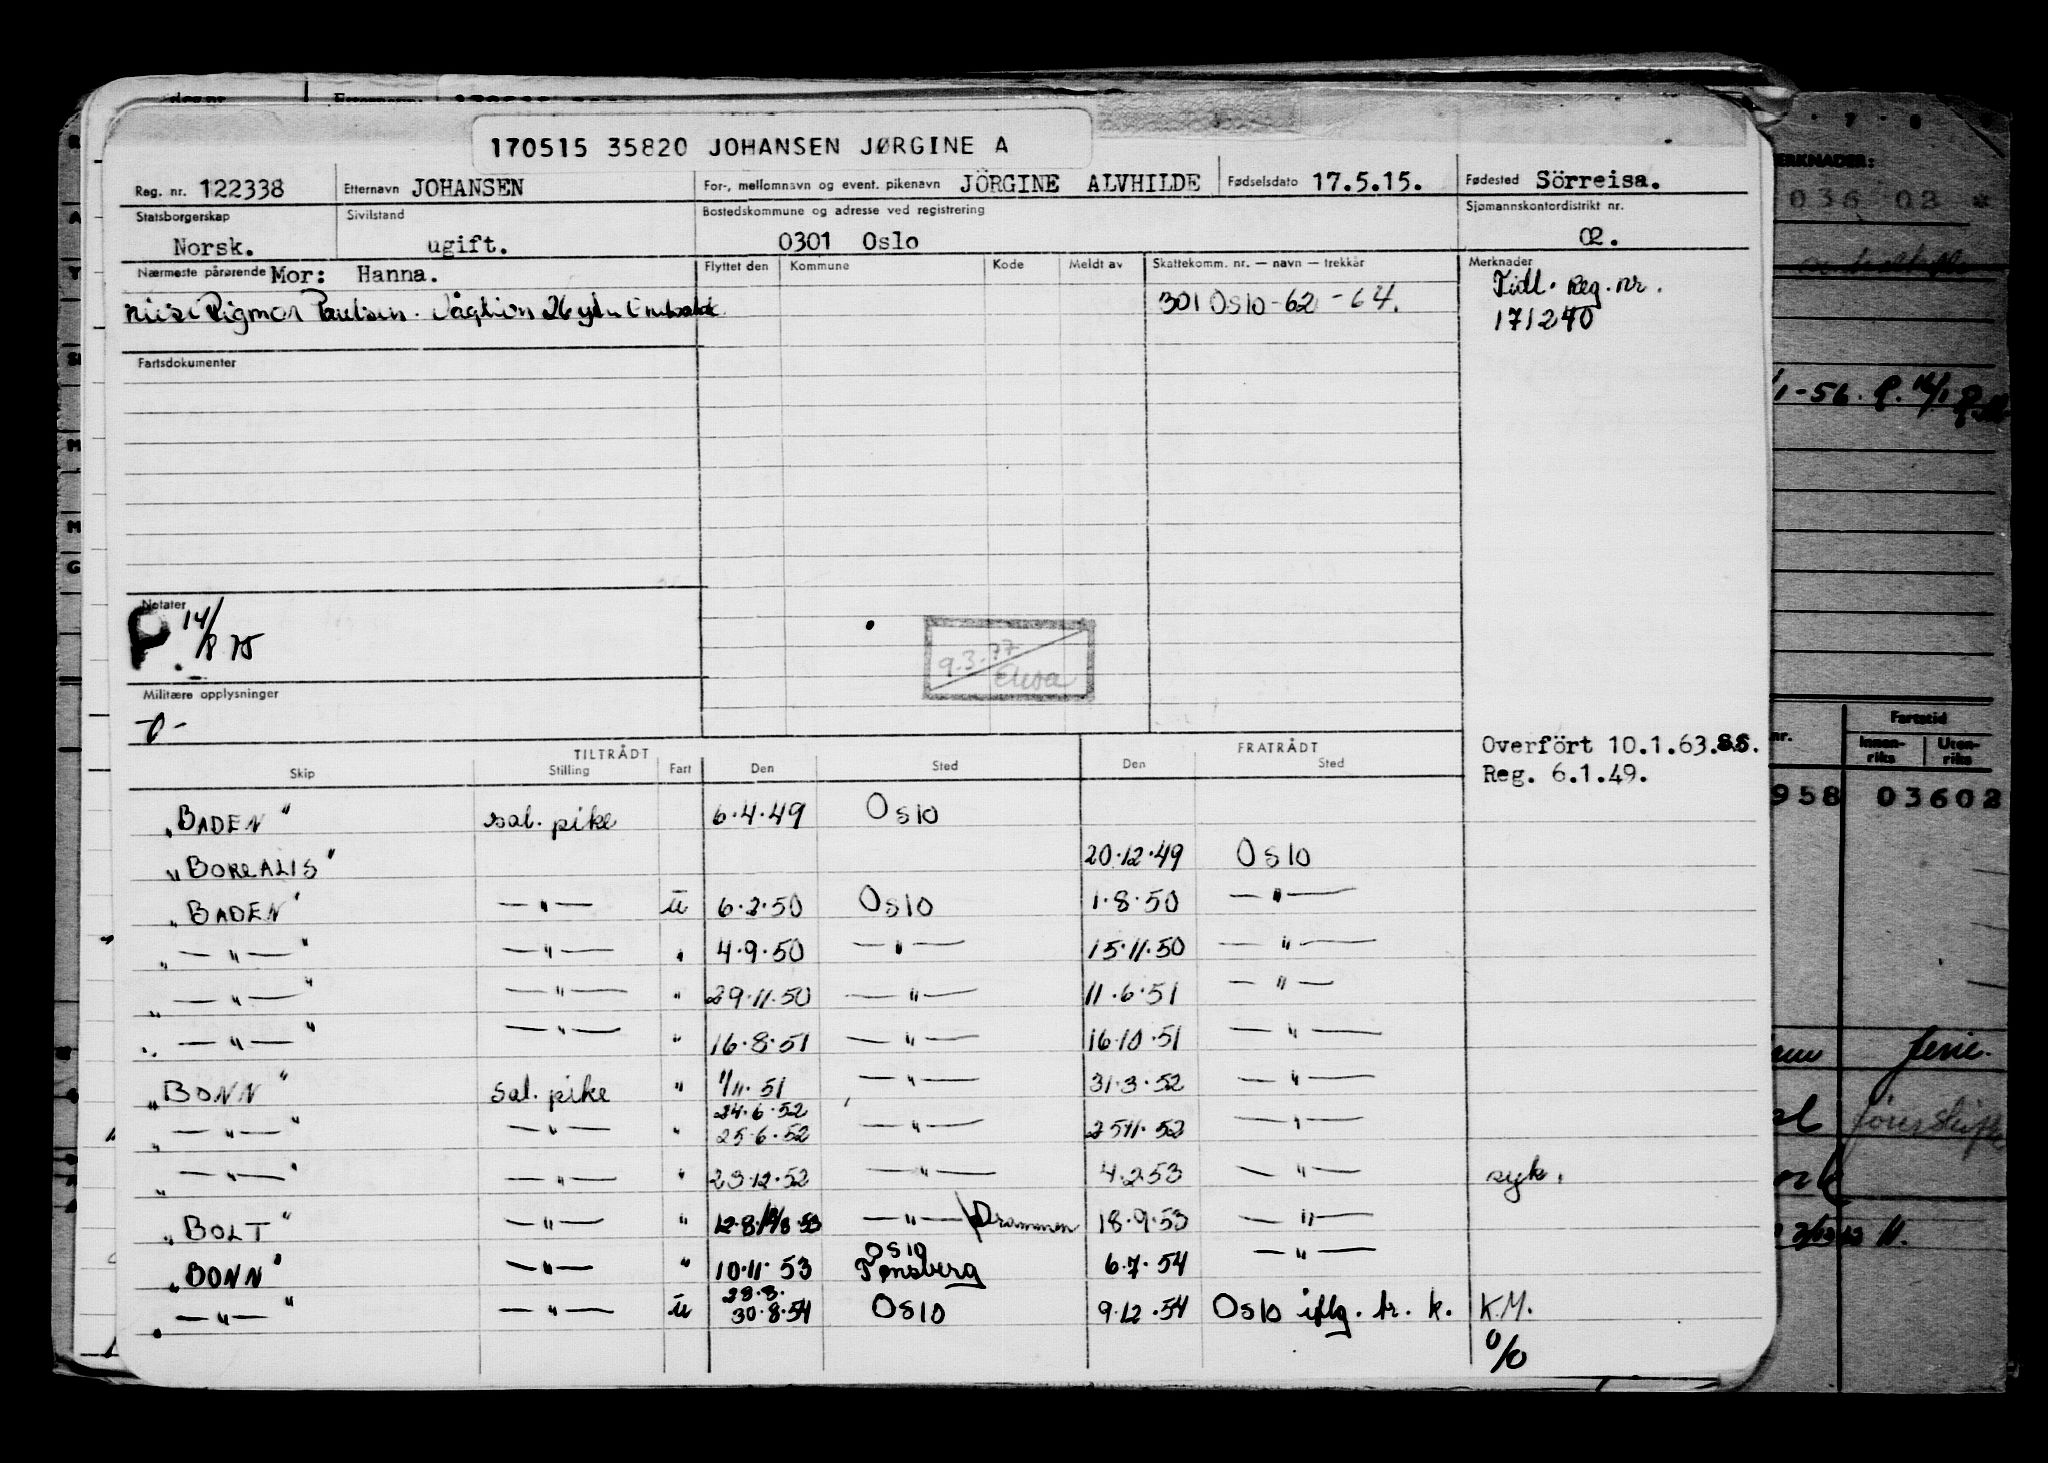 170515 35820 JOHANSEN JØRGINE A
Reg. nr. 122338 Etternavn JOHANSEN For-, mellomnavn og event. pikenavn JÖRGINE ALVHILDE Fødselsdato 17.5.15. Fødested Sörreisa.
Statsborgerskap Sivilstand Bostedskommune og adresse ved registrering Sjømannskontordistrikt nr.
Norsk. ugift. 0301 Oslo 02.
Nærmeste pårørende Mor: Hanna. Flyttet den Kommune Kode Meldt av Skattekomm. nr. — navn — trekkår Merknader
Rigmor Paulsen. 26 301 Oslo - 62 - 64. Tidl. Reg. nr.
171240
Fartsdokumenter
Notater
P. 14/8 75
9.3.77
Militære opplysninger
-0-
Overfört 10.1.63.SS.
Reg. 6.1.49.
TILTRÅDT FRATRÅDT
Skip Stilling Fart Den Sted Den Sted
"BADEN" sal. pike 6.4.49 Oslo
"BOREALIS" 20.12.49 Oslo
"BADEN" —"— u 6.2.50 Oslo 1.8.50 —"—
"—"—" —"— " 4.9.50 —"— 15.11.50 —"—
"—"—" —"— " 29.11.50 —"— 11.6.51 —"—
"—"—" —"— " 16.8.51 —"— 16.10.51 —"—
"BONN" sal. pike " 1/11.51 —"— 31.3.52 —"—
24.6.52
"—"—" —"— " 25.6.52 —"— 25.11.52 —"—
"—"—" —"— " 23.12.52 —"— 4.2.53 —"— syk.
"BOLT" —"— " 12.8./18/8.53 —"— Drammen 18.9.53 —"—
Oslo
"BONN" —"— " 10.11.53 Tønsberg 6.7.54 —"—
28.8.
"—"—" —"— u 30.8.54 Oslo 9.12.54 Oslo iflg. tr. k. K.M.
%
ERKNADER:
036 02 *
1-56.
Fartstid
nr. Innen-riks Uten-riks
958 03602
ferie.